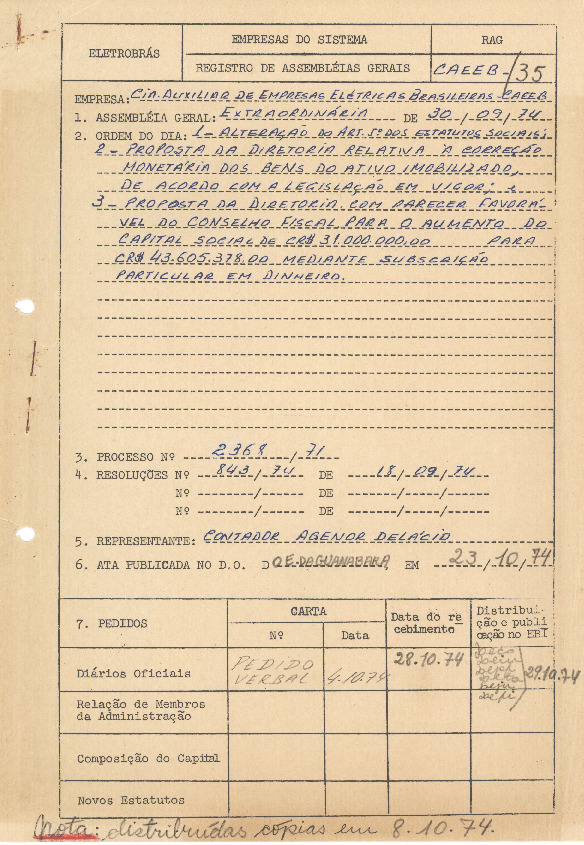 ELETROBRÁS
EMPRESAS DO SISTEMA
RAG
REGISTRO DE ASSEMBLÉIAS GERAIS
CAEEB-/35
EMPRESA: CIA. AUXILIAR DE EMPRESAS ELÉTRICAS BRASILEIRAS CAEEB
1. ASSEMBLÉIA GERAL: EXTRAORDINÁRIA DE 30/09/74
2. ORDEM DO DIA: 1 - ALTERAÇÃO DO ART. 5º DOS ESTATUTOS SOCIAIS;
2 - PROPOSTA DA DIRETORIA RELATIVA À CORREÇÃO
MONETÁRIA DOS BENS DO ATIVO IMOBILIZADO,
DE ACORDO COM A LEGISLAÇÃO EM VIGOR; e
3 - PROPOSTA DA DIRETORIA COM PARECER FAVORÁ-
VEL DO CONSELHO FISCAL PARA O AUMENTO DO
CAPITAL SOCIAL DE CR$ 31.000.000,00 PARA
CR$ 43.605.378,00 MEDIANTE SUBSCRIÇÃO
PARTICULAR EM DINHEIRO.
3. PROCESSO Nº 2368/71
4. RESOLUÇÕES Nº 843/74 DE 18/09/74
Nº ------/------ DE ------/------/------
Nº ------/------ DE ------/------/------
5. REPRESENTANTE: CONTADOR AGENOR DELÁCIO
6. ATA PUBLICADA NO D.O. DO E. DA GUANABARA EM 23/10/74
7. PEDIDOS
CARTA
Nº
Data
Data do re
cebimento
Distribui-
ção e publi
cação no EBI
Diários Oficiais
PEDIDO
VERBAL
4.10.74
28.10.74
29.10.74
Relação de Membros
da Administração
Composição do Capital
Novos Estatutos
Nota: distribuídas cópias em 8.10.74.